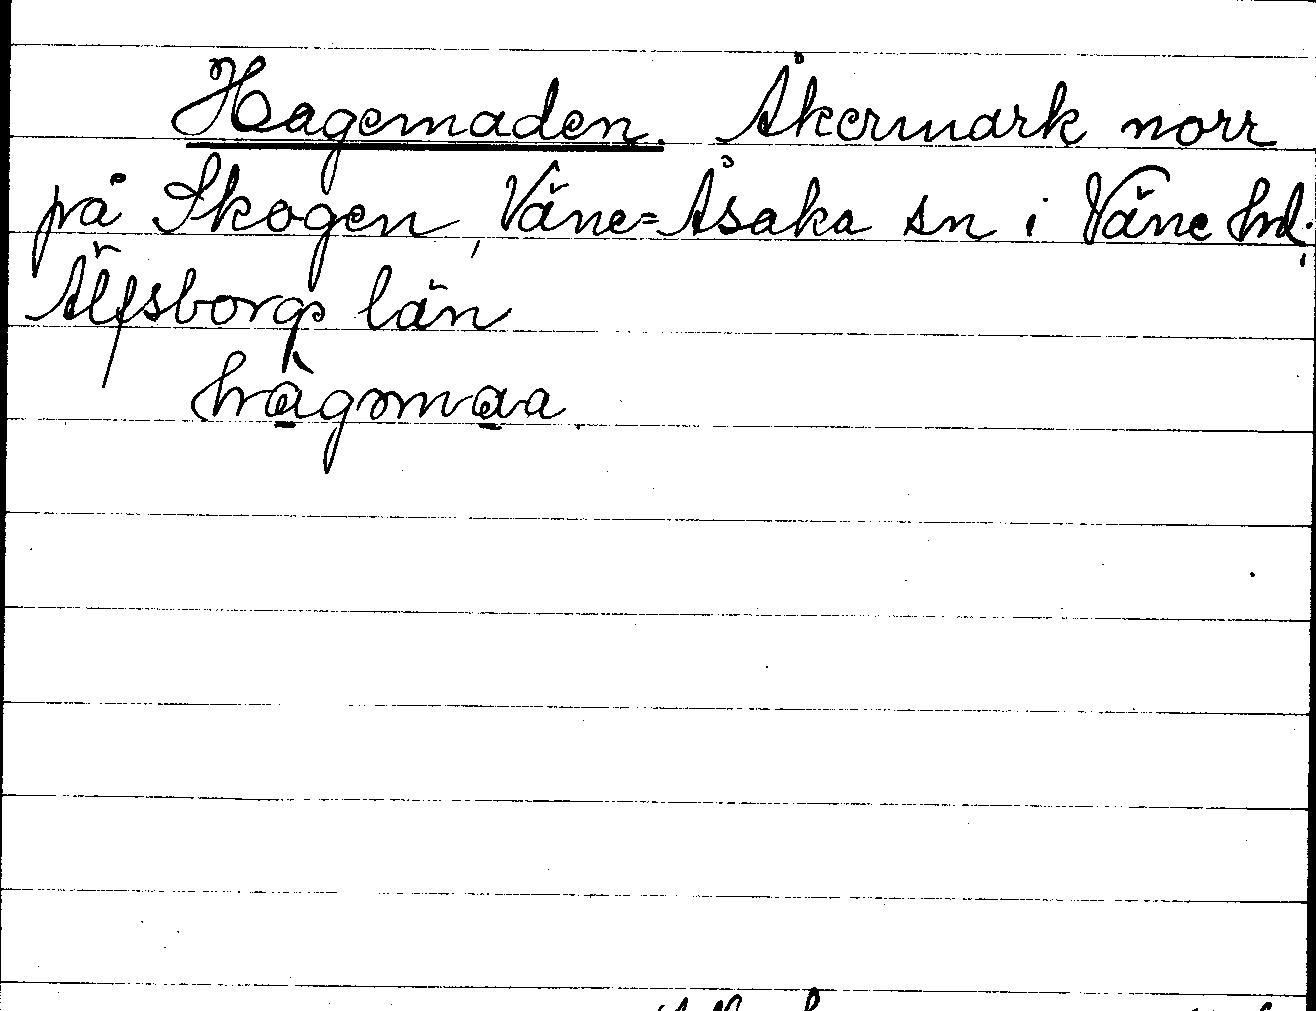 Hagemaden. Åkermark norr
på Skogen, Väne=Åsaka sn i Väne hd,
Älfsborgs län
hàgmaa.